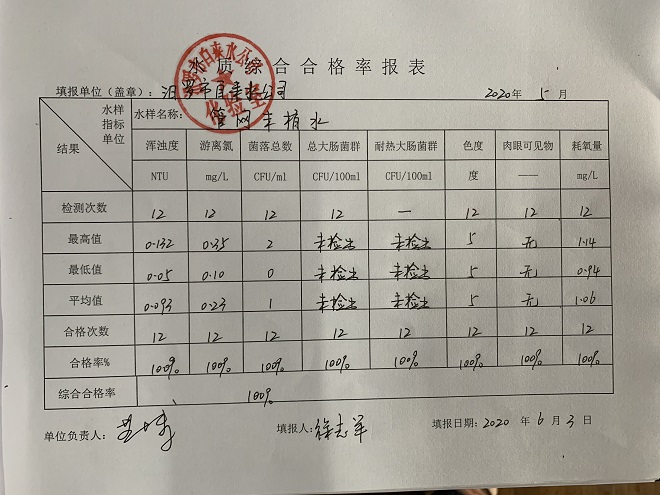 水质综合合格率报表
填报单位（盖章）：汨罗市自来水公司 2020年 5 月
自来水公司
化验室
水样 水样名称： 管网末梢水
指标
单位
结果
浑浊度 游离氯 菌落总数 总大肠菌群 耐热大肠菌群 色度 肉眼可见物 耗氧量
NTU mg/L CFU/ml CFU/100ml CFU/100ml 度 —— mg/L
检测次数 12 12 12 12 — 12 12 12
最高值 0.132 0.35 2 未检出 未检出 5 无 1.14
最低值 0.05 0.10 0 未检出 未检出 5 无 0.94
平均值 0.093 0.23 1 未检出 未检出 5 无 1.06
合格次数 12 12 12 12 12 12 12 12
合格率% 100% 100% 100% 100% 100% 100% 100% 100%
综合合格率 100%
单位负责人： 填报人：徐志军 填报日期：2020 年 6 月 3 日